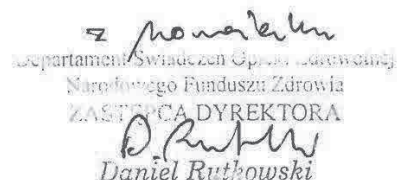 z poważaniem
Departament Świadczeń Opieki Zdrowotnej
Narodowego Funduszu Zdrowia
ZASTĘPCA DYREKTORA
Daniel Rutkowski